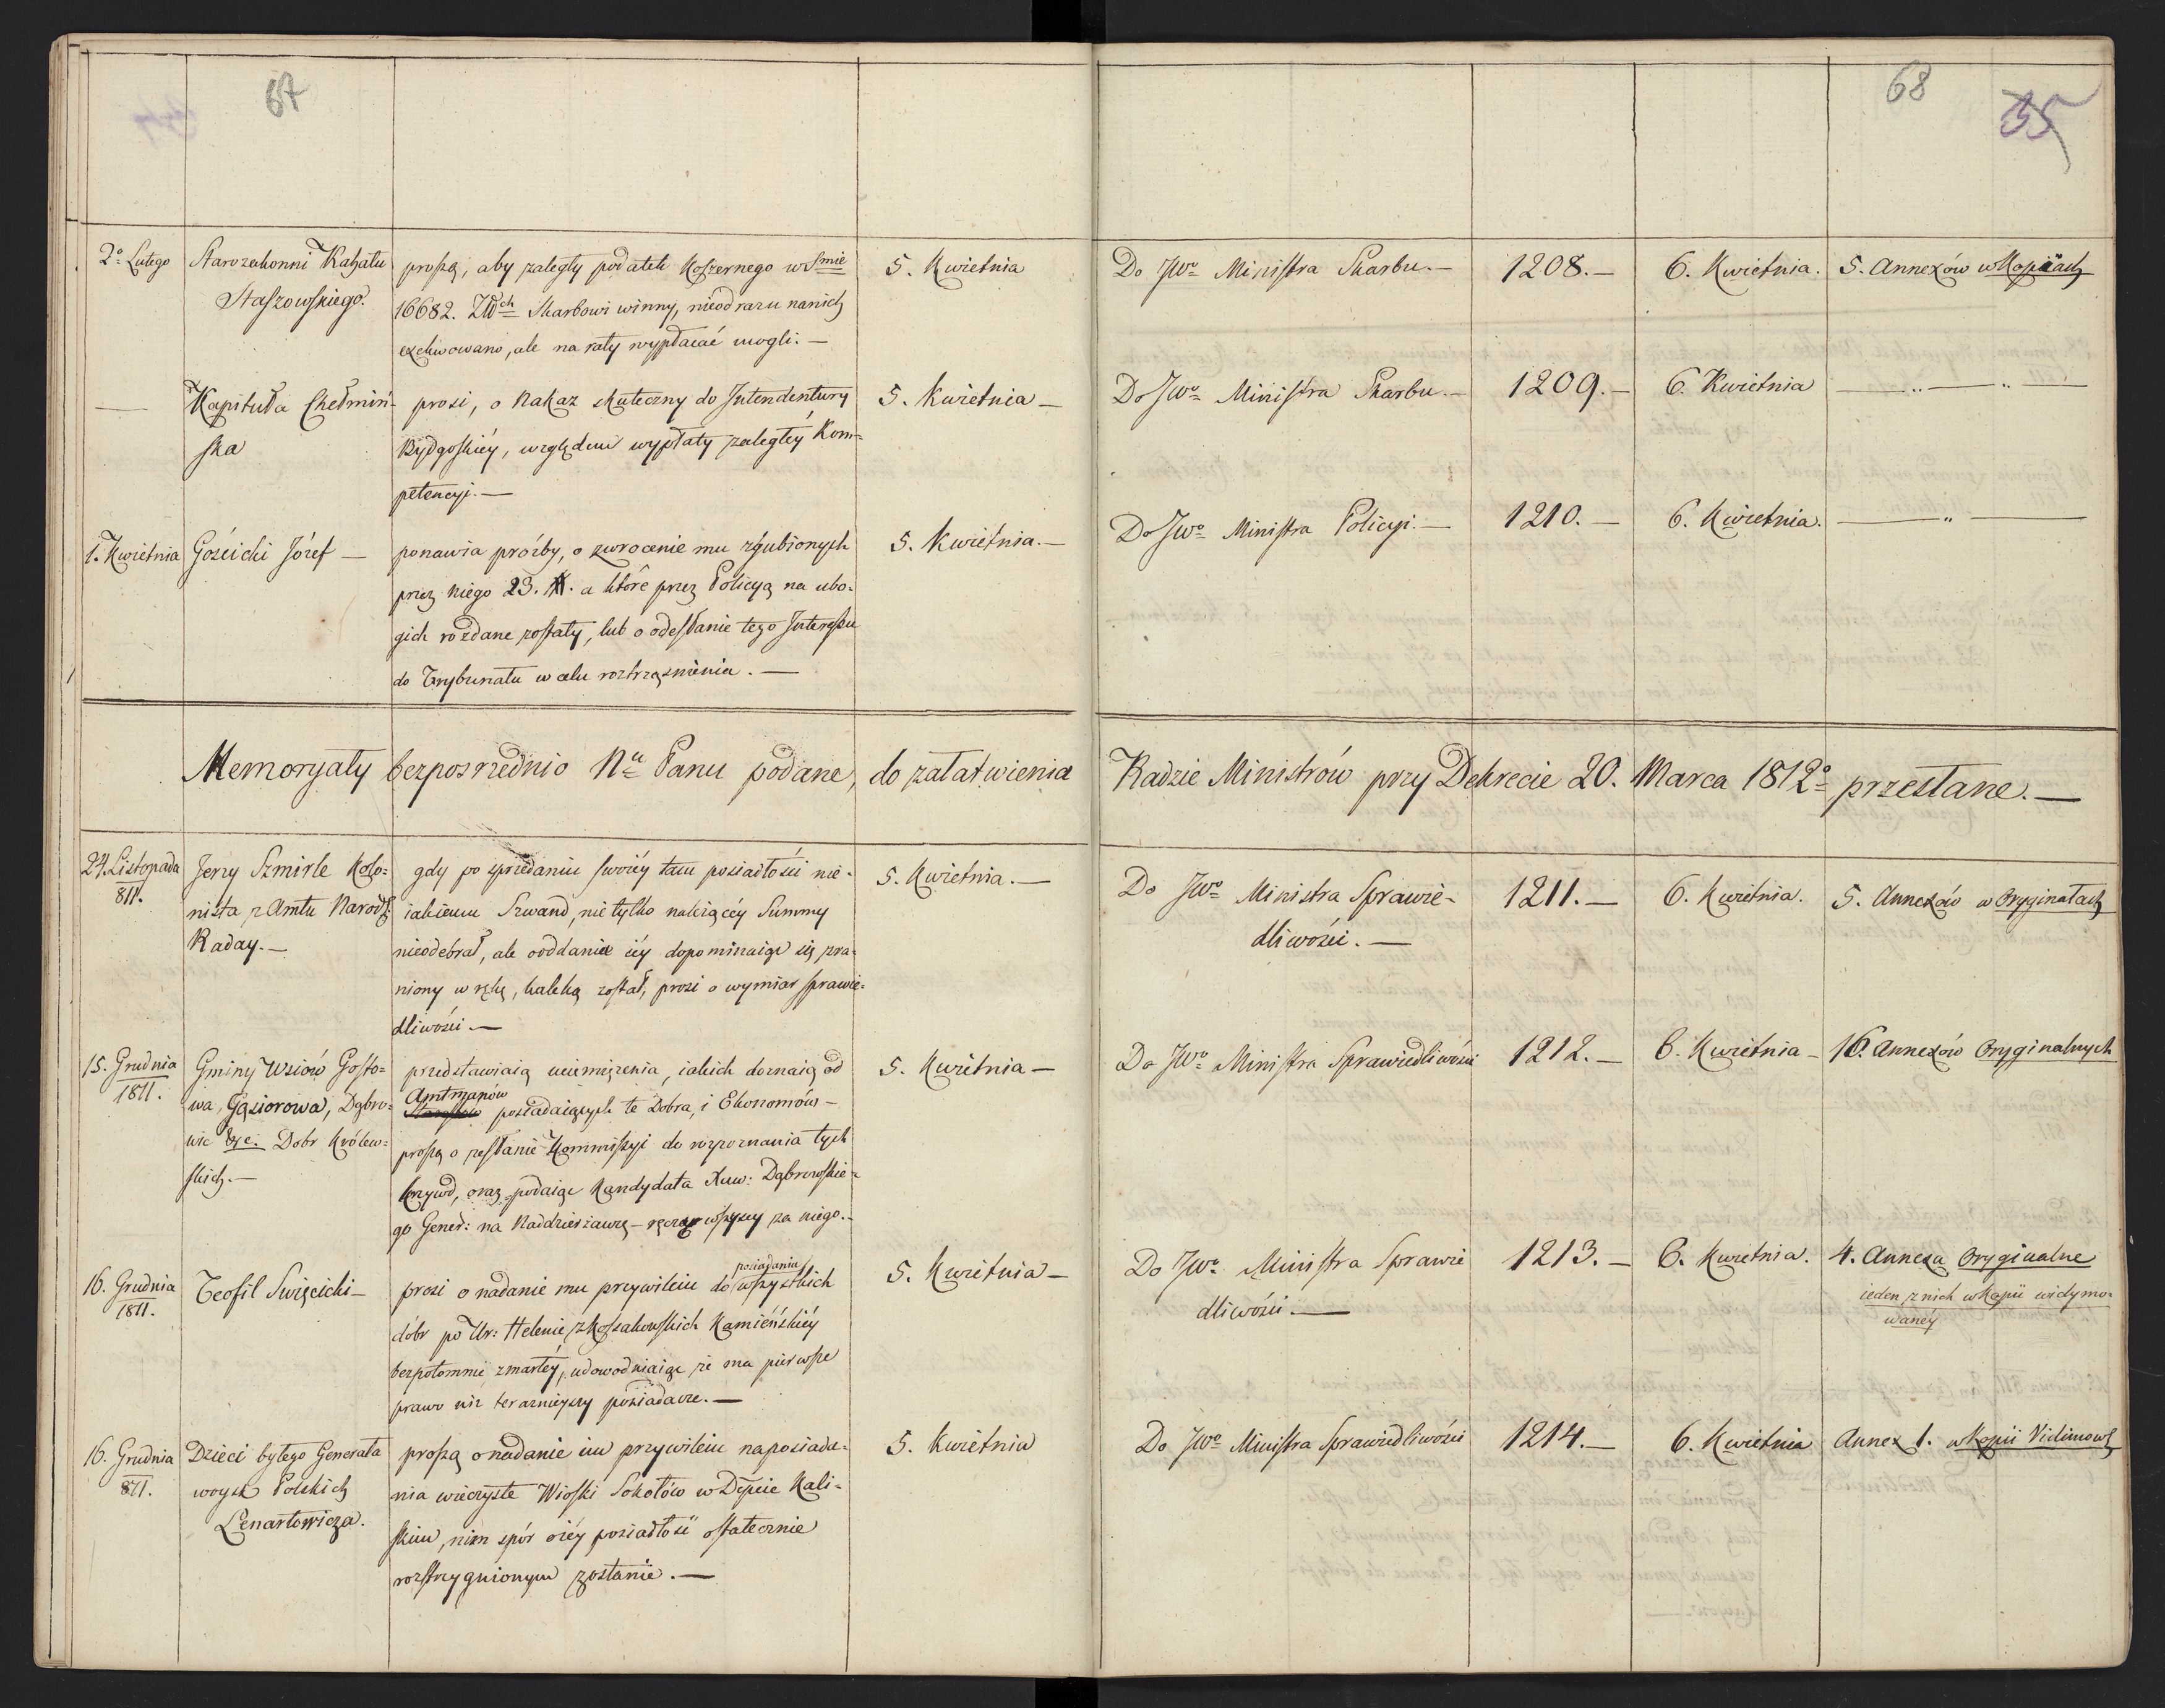 67
68
35
2º Lutego
Starozakonni Kahału
Staszowskiego.
proszą, aby zaległy podatek koszernego w Smie
16682. Złłch Skarbowi winny, nieod razu nanich
exekwowano, ale na raty wypłacać mogli. —
5. Kwietnia
Do JWo Ministra Skarbu. —
1208. —
6. Kwietnia.
5. Annexów w Kopiiach
—
Kapituła Chełmiń-
ska
prosi, o Nakaz skuteczny do Intendentury
Bydgoskiéy, względem wypłaty zaległéy Kom=
petencyi. —
5. Kwietnia —
Do JWo Ministra Skarbu. —
1209. —
6. Kwietnia
— „ — „ —
1. Kwietnia
Gościcki Józef —
ponawia prózby, o zwrocenie mu zgubionych
przez niego 23. # . a które przez Policyą na ubo-
gich rozdane zostały, lub o odesłanie tego Interessu
do Trybunału w celu roztrząsnienia. —
5. Kwietnia. —
Do JWo Ministra Policyi. —
1210. —
6. Kwietnia.
— „ —
Memoryały bezposrzednio Nu Panu podane, do załatwienia Radzie Ministrów przy Dekrecie 20. Marca 1812º przesłane. —
24. Listopada
811.
Jerzy Szmirle Kolo=
nista z Amtu Narod
Raday. —
gdy po sprzedaniu swoiéy tam posiadłości nie-
iakiemu Szwand, nie tylko należącéy Summy
nieodebrał, ale o oddanie iéy dopominaiąc się zra-
niony w rękę, kaleką został, prosi o wymiar sprawie-
dliwości. —
5. Kwietnia. —
Do JWo Ministra Sprawie-
dliwości. —
1211. —
6. Kwietnia.
5. Annexów w Oryginałach
15. Grudnia
1811.
Gminy Wsiów Gosto=
wa, Gąsiorowa, Dąbro=
wic &c. Dobr Królew=
skich. —
przedstawiaią uciemiężenia, iakich doznaią od
Amtmanów
posiadaiących te Dobra, i Ekonomów —
proszą o zesłanie Kommissyi do rozpoznania tych
krzywd, oraz podaiąc Kandydata Xaw: Dąbrowskie=
go Gener: na Naddzierżawcę — ręczą wszyscy za niego. —
5. Kwietnia —
Do JWo Ministra Sprawiedliwości
1212. —
6. Kwietnia —
16. Annexów Oryginalnych
16. Grudnia
1811.
Teofil Swięcicki —
posiadania
prosi o nadanie mu przywileiu do wszystkich
dóbr po Ur: Helenie z Kossakowskich Kamieńskiéy
bezpotomnie zmarłéy, udowodniaiąc że ma pierwsze
prawo niż teraznieyszy posiadacze. —
5. Kwietnia —
Do JWo Ministra Sprawie
dliwości. —
1213. —
6. Kwietnia.
4. Annexa Oryginalne
ieden z nich w Kopii widymo=
wanéy
16. Grudnia
811.
Dzieci byłego Generała
woysk Polskich
Lenartowicza.
proszą o nadanie im przywileiu na posiada=
nia wieczyste Wioski Sokołów w Depcie Kali=
skim, nim spór o iéy posiadłość ostatecznie
rozstrzygnionym zostanie. —
5. Kwietnia
Do JWo Ministra Sprawiedliwości
1214. —
6. Kwietnia
Annex 1. w Kopii Vidimowéy